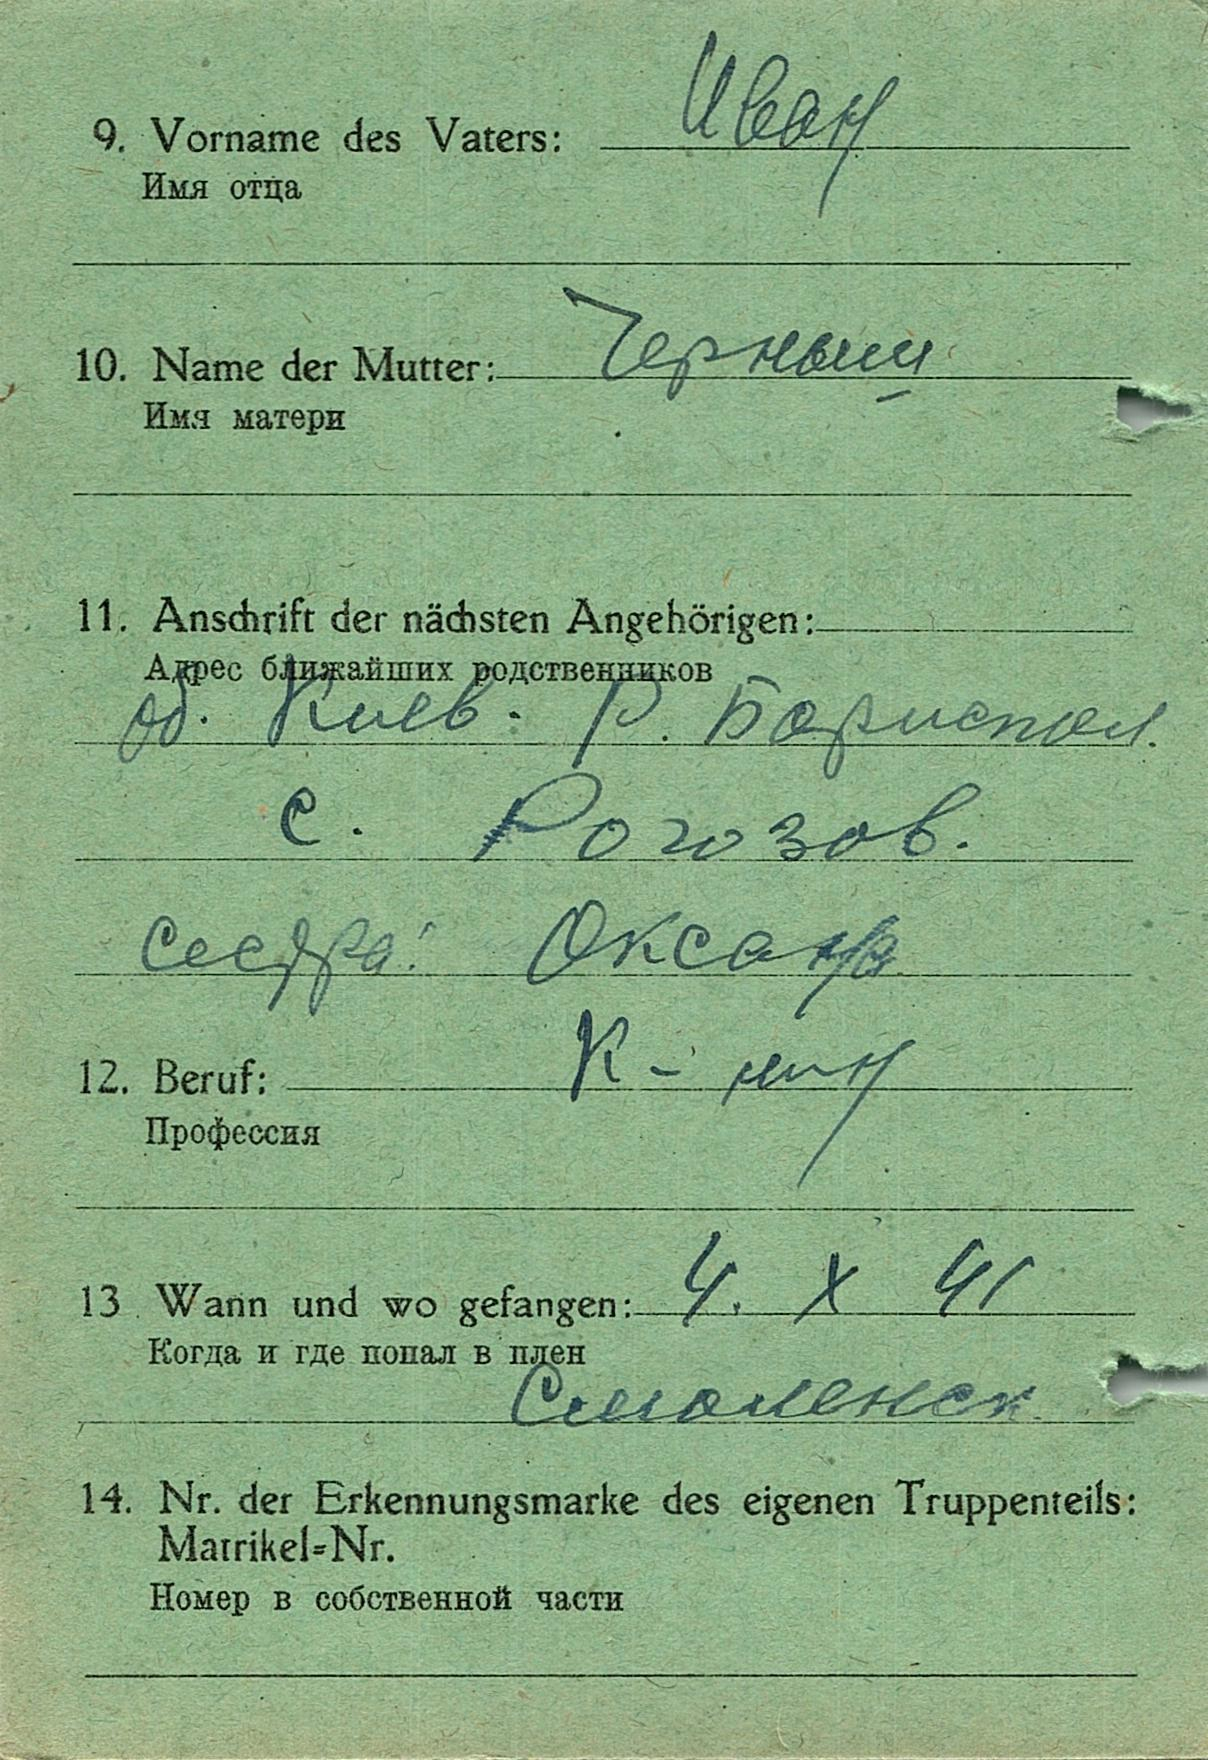 9. Vorname des Vaters: Иван
Имя отца
10. Name der Mutter: Черныш
Имя матери
11. Anschrift der nächsten Angehörigen:
Адрес ближайших родственников
об. Киев. Р. Бориспол.
с. Рогозов.
сестра: Оксана
12. Beruf: К-
Профессия
13 Wann und wo gefangen: 4. X 41
Когда и где попал в плен
Смоленск.
14. Nr. der Erkennungsmarke des eigenen Truppenteils:
Matrikel=Nr.
Номер в собственной части